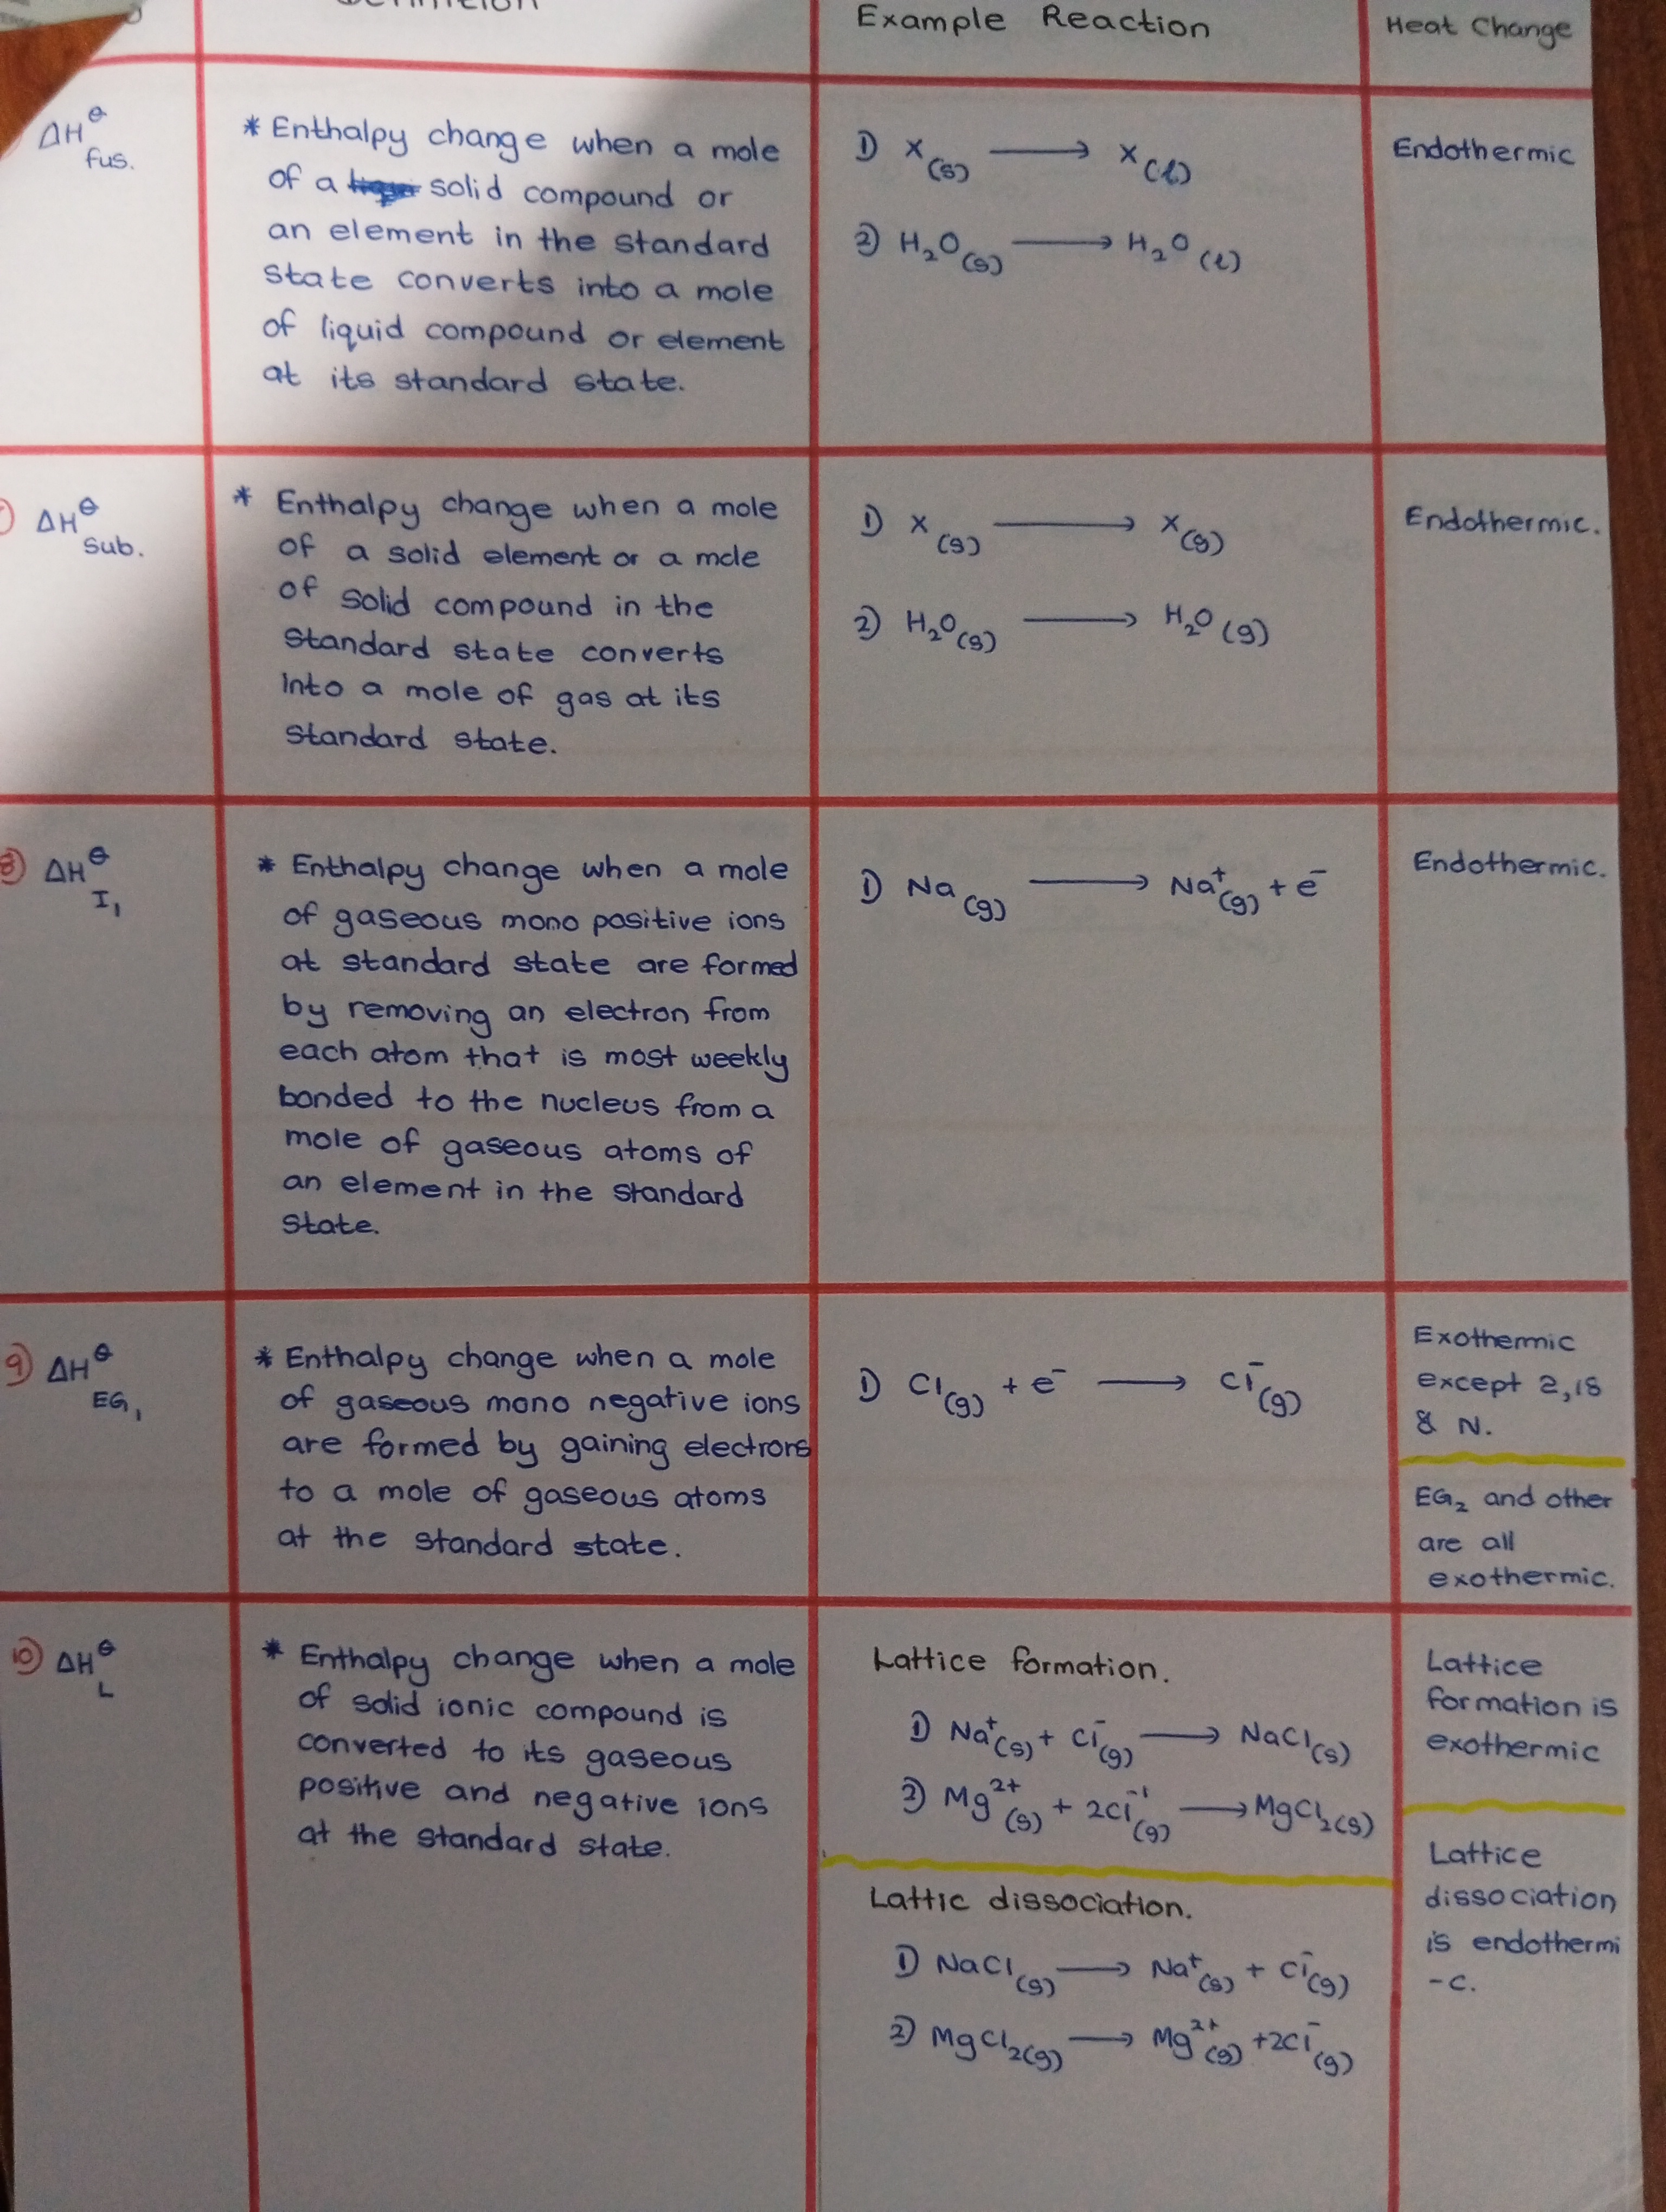 Example Reaction
Heat Change
ΔH⊖fus.
* Enthalpy change when a mole
of a solid compound or
an element in the standard
state converts into a mole
of liquid compound or element
at its standard state.
1) X(s) ⟶ X(l)
2) H₂O(s) ⟶ H₂O(l)
Endothermic
ΔH⊖Sub.
* Enthalpy change when a mole
of a solid element or a mole
of solid compound in the
standard state converts
into a mole of gas at its
standard state.
1) X(s) ⟶ X(g)
2) H₂O(s) ⟶ H₂O(g)
Endothermic.
8) ΔH⊖I₁
* Enthalpy change when a mole
of gaseous mono positive ions
at standard state are formed
by removing an electron from
each atom that is most weekly
bonded to the nucleus from a
mole of gaseous atoms of
an element in the standard
state.
1) Na(g) ⟶ Na⁺(g) + e⁻
Endothermic.
9) ΔH⊖EG₁
* Enthalpy change when a mole
of gaseous mono negative ions
are formed by gaining electrons
to a mole of gaseous atoms
at the standard state.
1) Cl(g) + e⁻ ⟶ Cl⁻(g)
Exothermic
except 2,18
& N.
EG₂ and other
are all
exothermic.
10) ΔH⊖L
* Enthalpy change when a mole
of solid ionic compound is
converted to its gaseous
positive and negative ions
at the standard state.
Lattice formation.
1) Na⁺(s) + Cl⁻(g) ⟶ NaCl(s)
2) Mg²⁺(s) + 2Cl⁻¹(g) ⟶ MgCl₂(s)
Lattic dissociation.
1) NaCl(g) ⟶ Na⁺(s) + Cl⁻(g)
2) MgCl₂(g) ⟶ Mg²⁺(g) + 2Cl⁻(g)
Lattice
formation is
exothermic
Lattice
dissociation
is endothermi
-c.